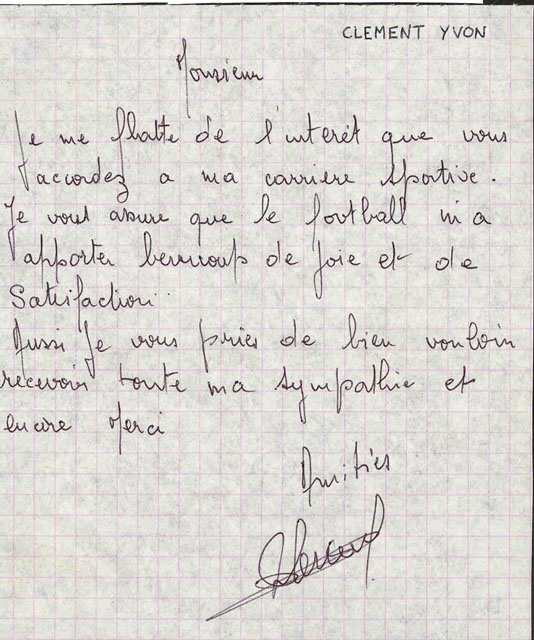 CLEMENT YVON
Monsieur
Je me flatte de l'interêt que vous
accordez a ma carriere sportive.
Je vous assure que le football m'a
apporter beaucoup de joie et de
Satisfaction
Aussi Je vous pries de bien vouloir
recevoir toute ma sympathie et
encore Merci
Amitiés
Clement